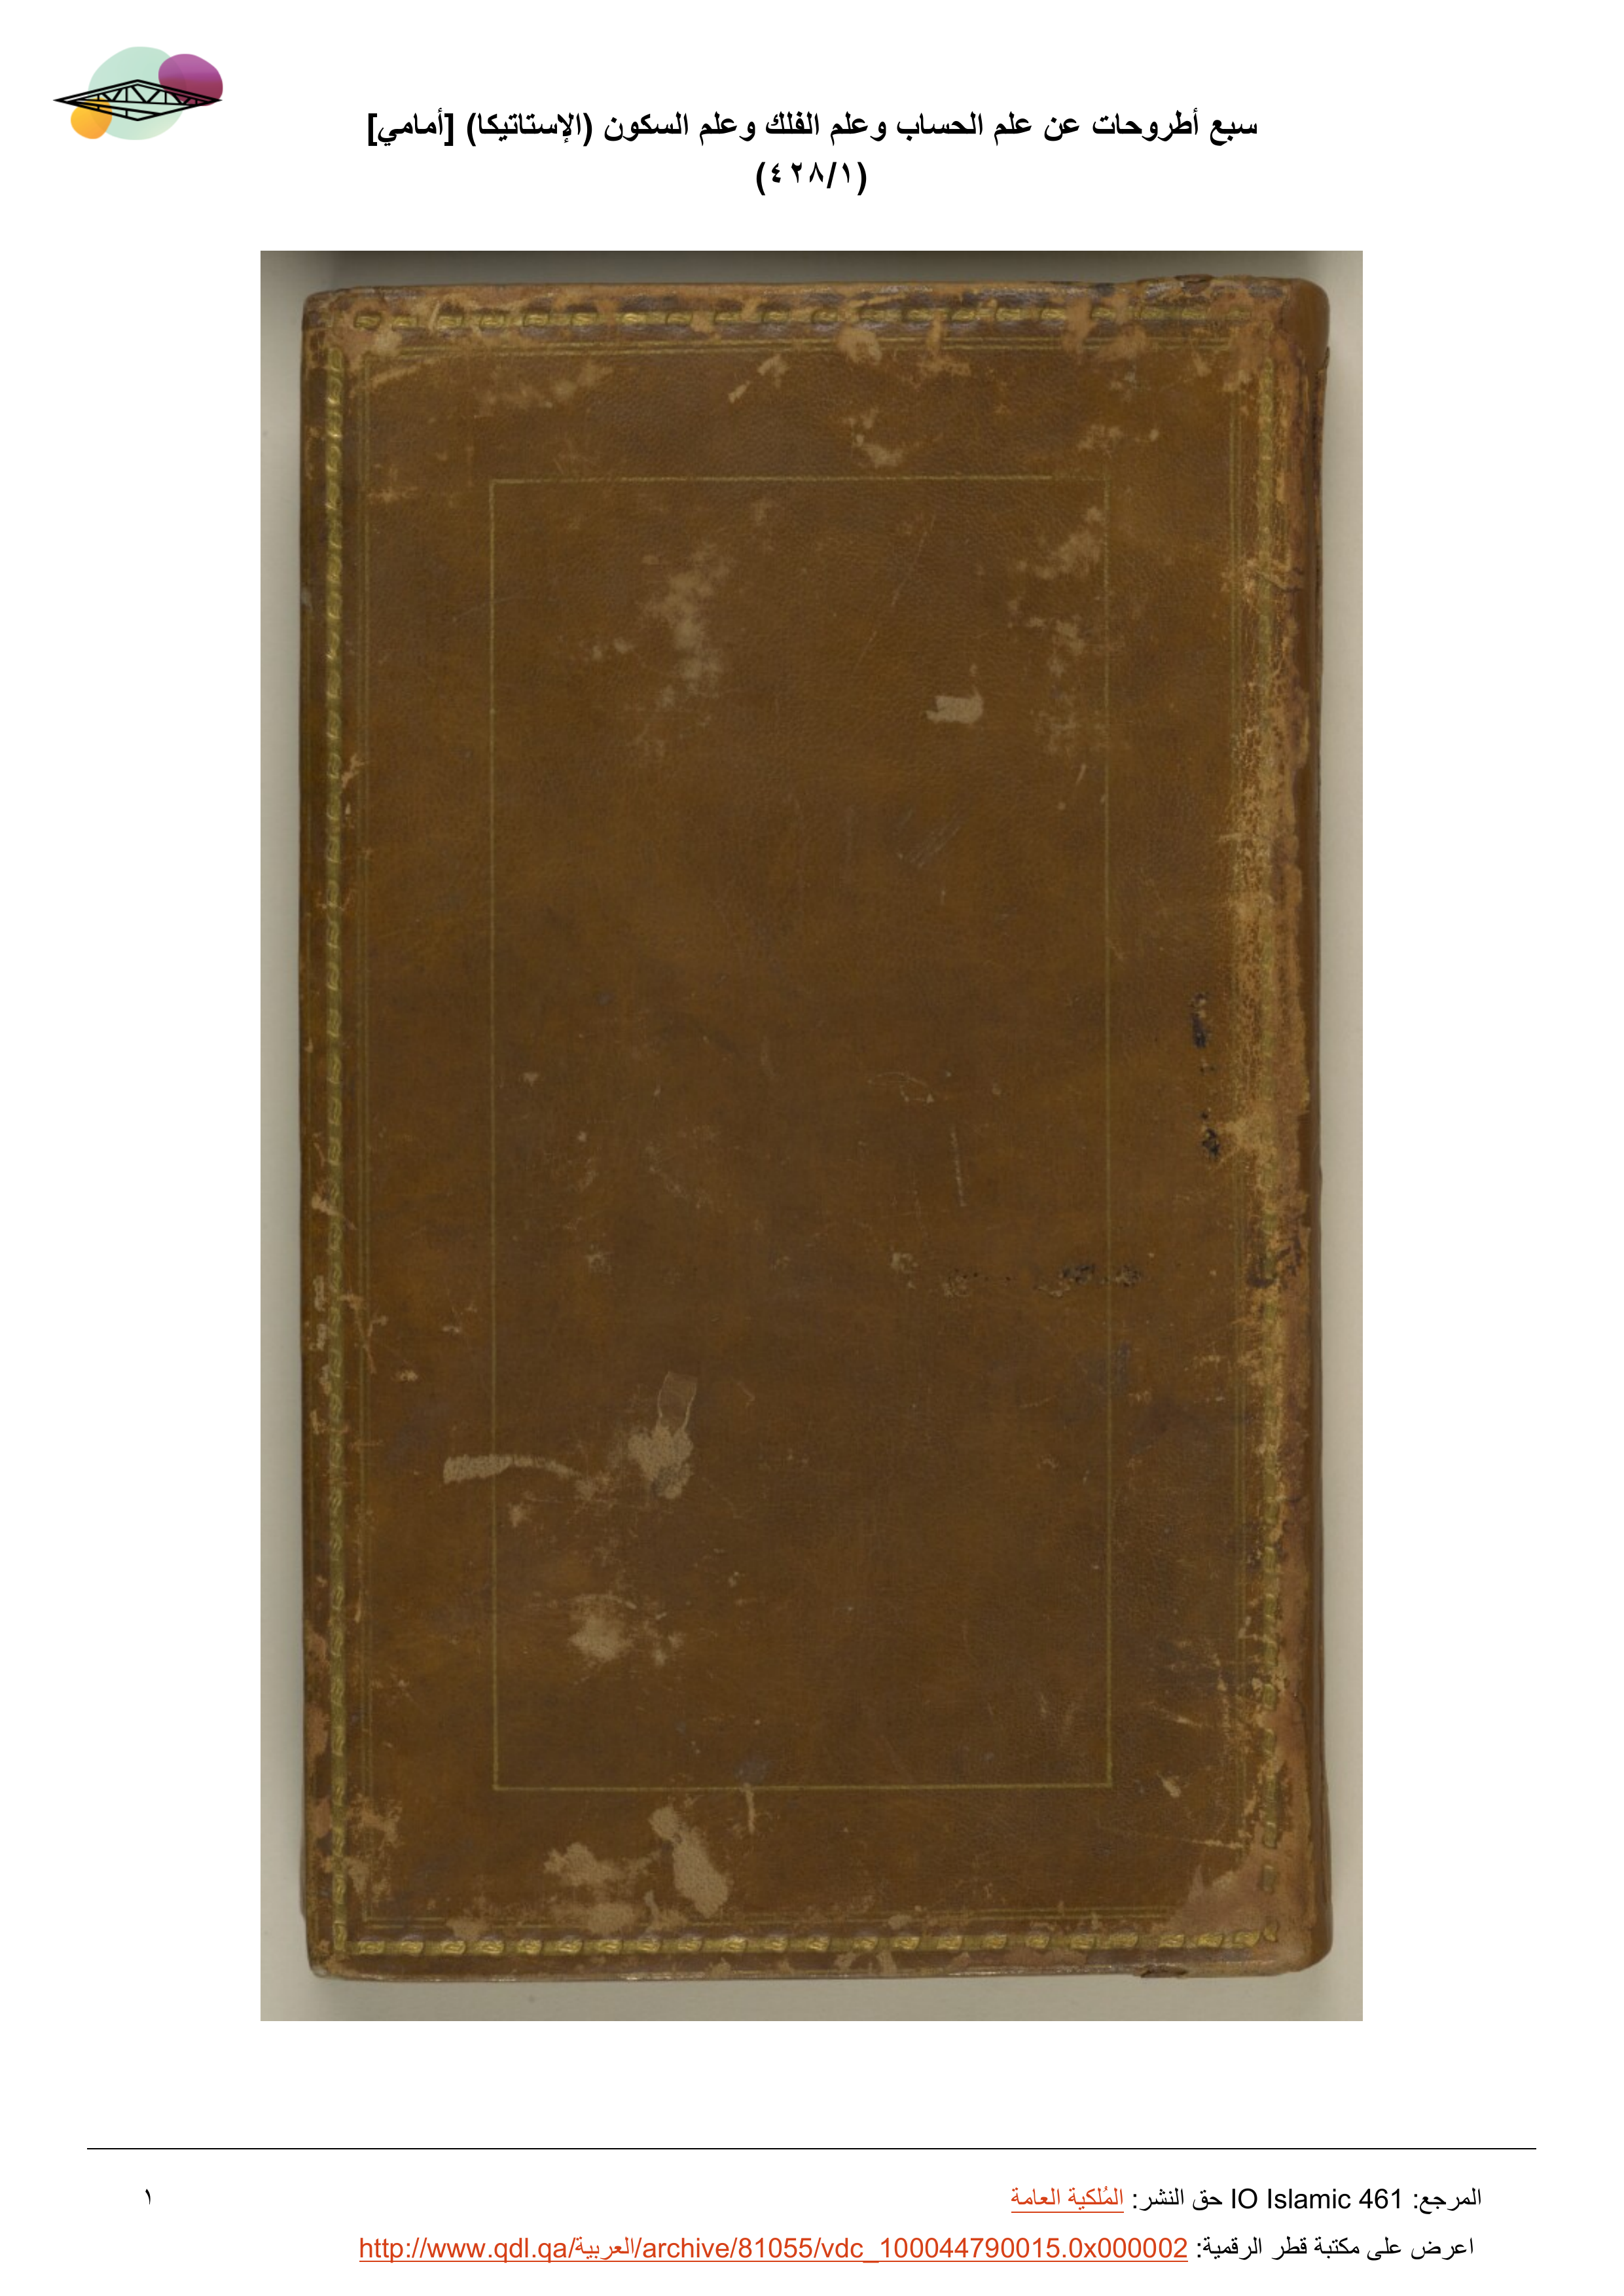 سبع أطروحات عن علم الحساب وعلم الفلك وعلم السكون (الإستاتيكا) [أمامي]
(٤٢٨/١)
المرجع: IO Islamic 461 حق النشر: المُلكية العامة
١
اعرض على مكتبة قطر الرقمية: http://www.qdl.qa/العربية/archive/81055/vdc_100044790015.0x000002